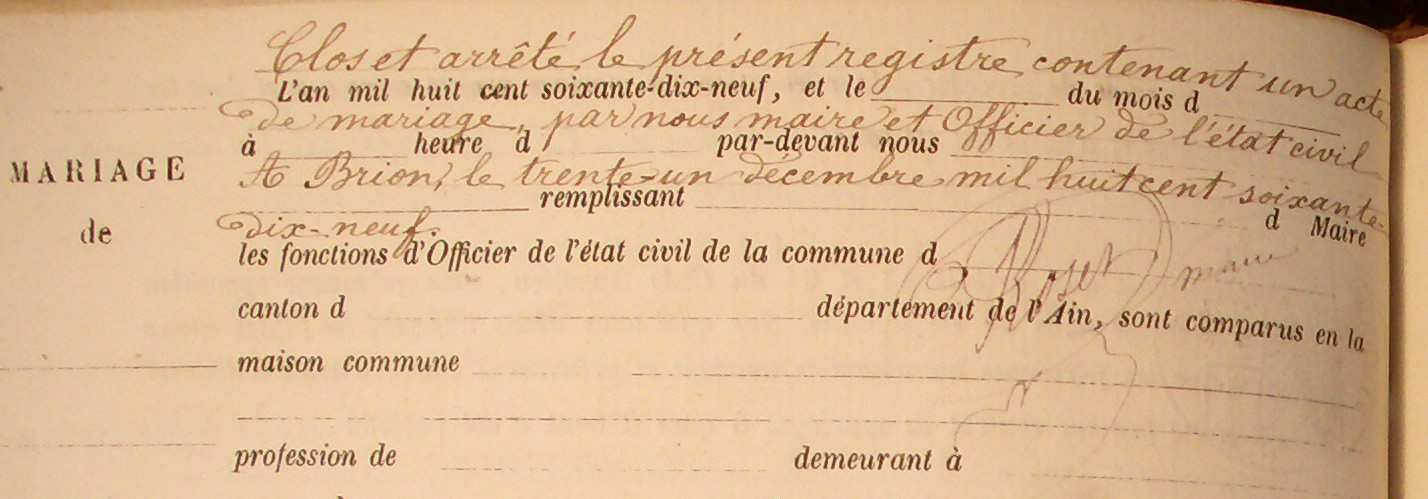 Clos et arrêté le présent registre contenant un acte
L'an mil huit cent soixante-dix-neuf, et le du mois d
de mariage, par nous maire et Officier de l'état civil
à heure d par-devant nous
MARIAGE
A Brion, le trente-un décembre mil huit cent soixante-
remplissant d Maire
dix-neuf.
de
les fonctions d'Officier de l'état civil de la commune d
Roset maire
canton d département de l'Ain, sont comparus en la
maison commune
profession de demeurant à